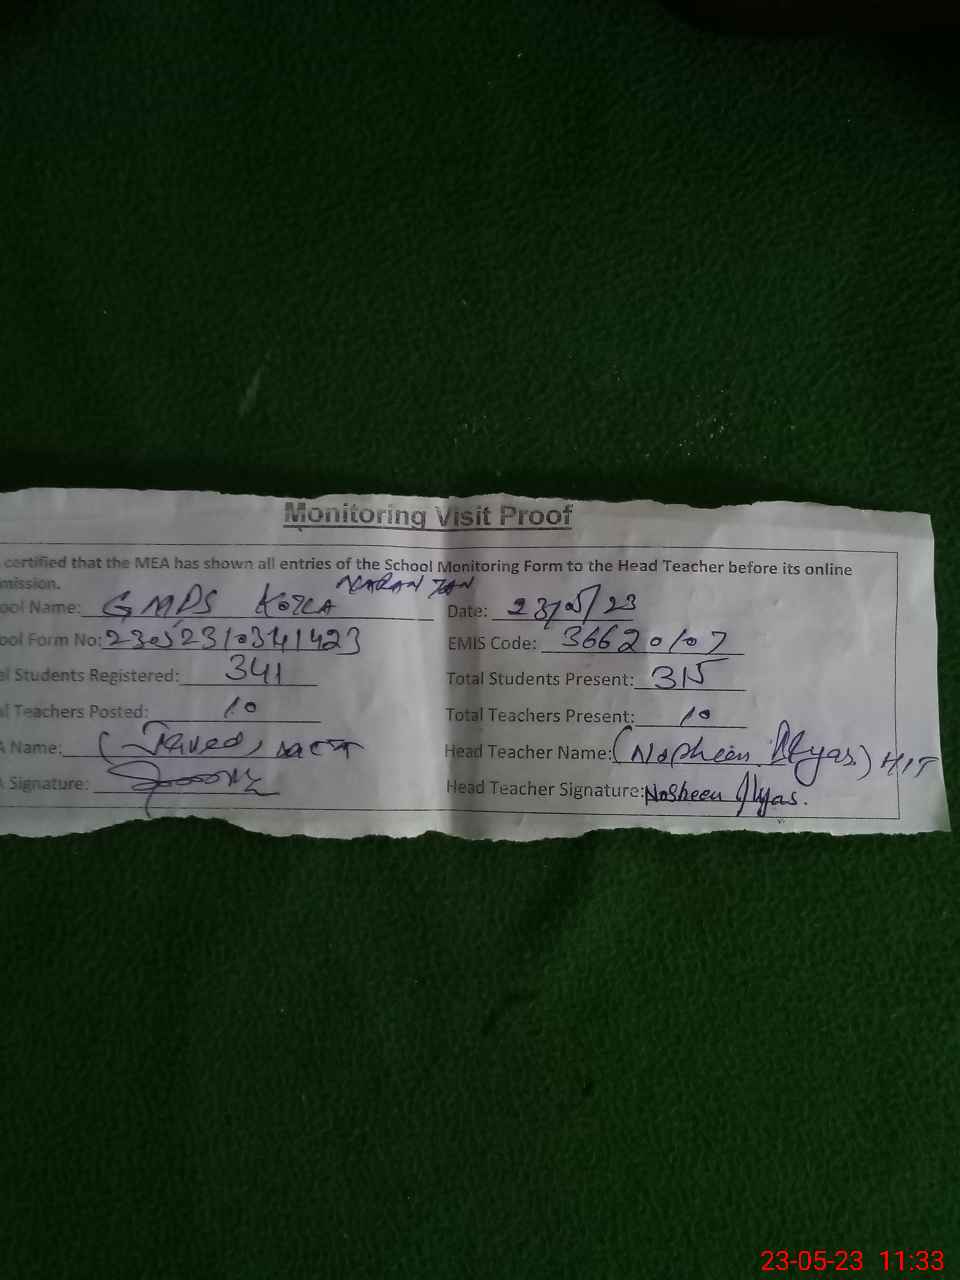 Monitoring Visit Proof
certified that the MEA has shown all entries of the School Monitoring Form to the Head Teacher before its online
mission.
ool Name: GMPS KOTLA Date: 23/05/23
ool Form No: 23052310341423 EMIS Code: 36620107
al Students Registered: 341 Total Students Present: 315
al Teachers Posted: 10 Total Teachers Present: 10
A Name: (Javed, Head Teacher Name: (Nosheen Ilyas) HIT
A Signature: Head Teacher Signature: Nosheen Ilyas.
23-05-23 11:33